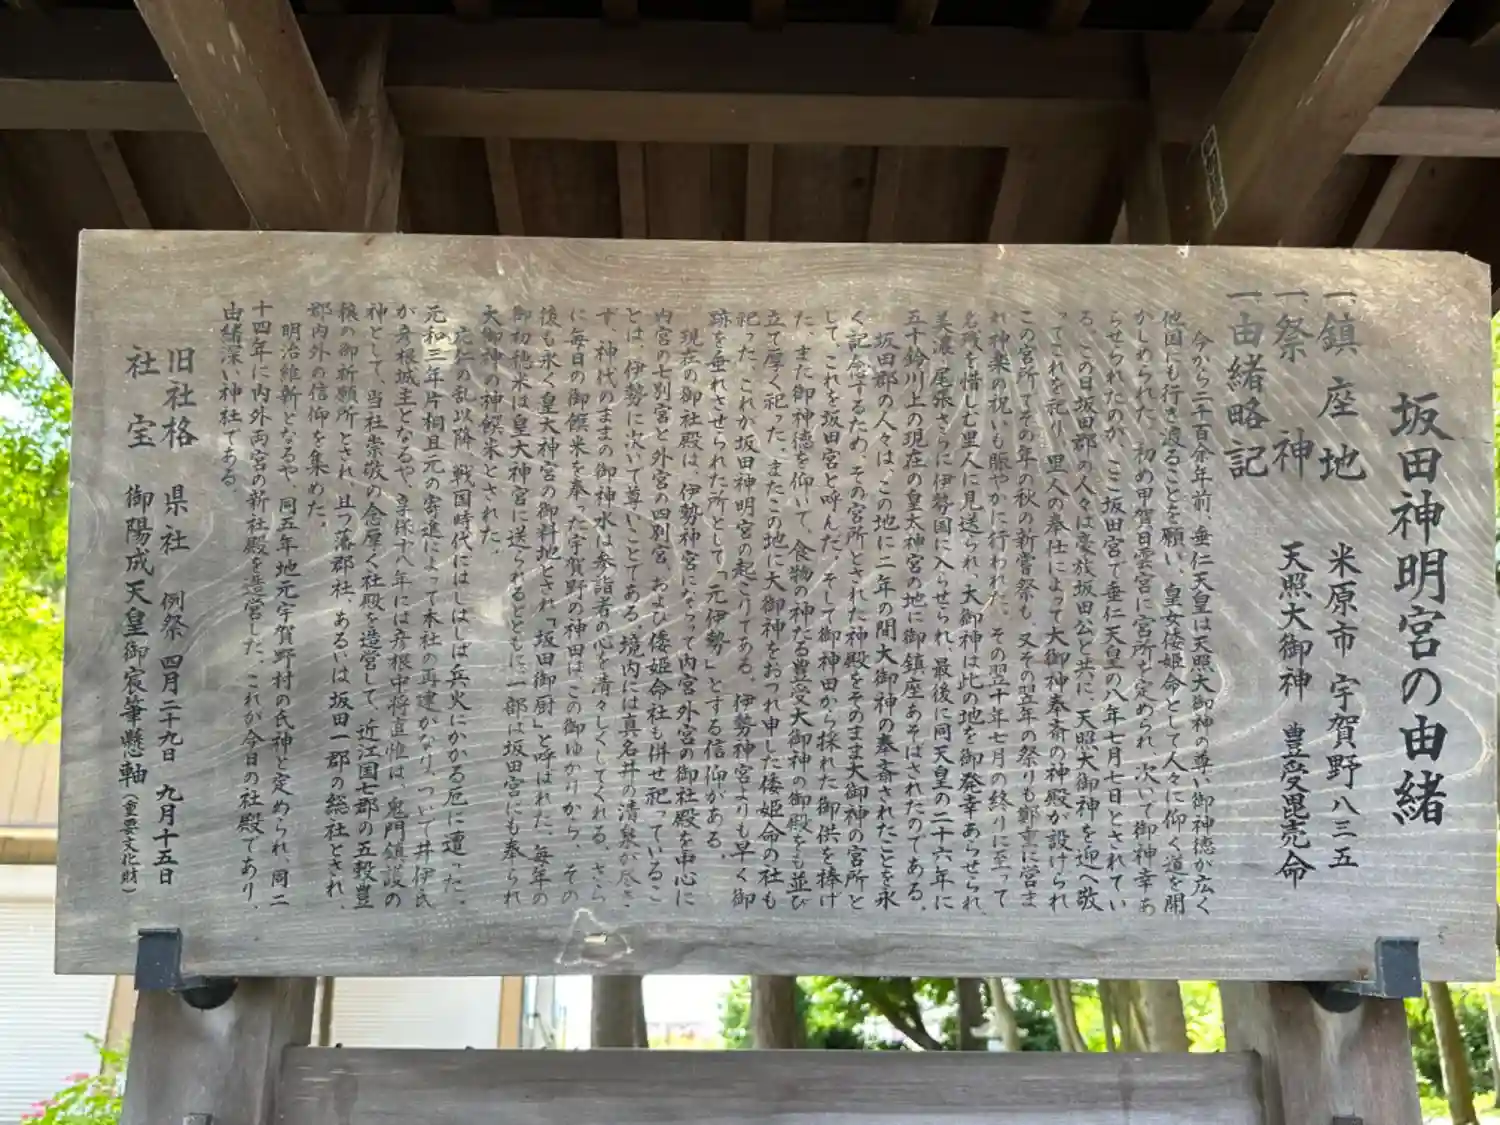 坂田神明宮の由緒
一、鎮座地 米原市宇賀野八三五
一、祭神 天照大御神 豊受毘売命
一、由緒略記
今から二千百余年前、垂仁天皇は天照大御神の尊い御神徳が広く
他国にも行き渡ることを願い、皇女倭姫命として人々に仰く道を開
かしめられた、初め甲賀日雲宮に宮所を定められ、次いて御神幸あ
らせられたのが、ここ坂田宮で垂仁天皇の八年七月七日とされてい
る。この日坂田郡の人々は豪族坂田公と共に、天照大御神を迎へ敬
ってこれを祀り、里人の奉仕によって大御神奉斎の神殿が設けられ
この宮所てその年の秋の新嘗祭も、又その翌年の祭りも鄭重に営ま
れ神楽の祝いも賑やかに行われた、その翌十年七月の終りに至って
名残を惜しむ里人に見送られ、大御神は此の地を御発幸あらせられ、
美濃、尾張さらに伊勢国に入らせられ、最後に同天皇の二十六年に
五十鈴川上の現在の皇太神宮の地に御鎮座あそばされたのである。
坂田郡の人々は、この地に二年の間大御神の奉斎されたことを永
く記念するため、その宮所とされた神殿をそのまま大御神の宮所と
して、これを坂田宮と呼んだ、そして御神田から採れた御供を捧け
た、また御神徳を仰いて、食物の神たる豊受大御神の御殿をも並び
立て厚く祀った、またこの地に大御神をおつれ申した倭姫命の社も
祀った、これか坂田神明宮の起こりてある、伊勢神宮よりも早く御
跡を垂れさせられた所として「元伊勢」とする信仰がある。
現在の御社殿は、伊勢神宮にならって内宮外宮の御社殿を中心に
内宮の七別宮と外宮の四別宮、および倭姫命社も併せ祀っているこ
とは、伊勢に次いて尊いことてある、境内には真名井の清泉が尽き
ず、神代のままの御神水は参詣者の心を清々しくしてくれる、さら
に毎日の御饌米を奉った宇賀野の神田はこの御ゆかりから、その
後も永く皇大神宮の御料地とされ「坂田御厨」と呼はれた、毎年の
御初穂米は皇大神宮に送られるとともに、一部は坂田宮にも奉られ
大御神の神饌米とされた。
応仁の乱以降、戦国時代にはしはしば兵火にかかる厄に遭った。
元和三年片桐且元の寄進によって本社の再建かなり、ついて井伊氏
が彦根城主となるや、享保十八年には彦根中将直惟は、鬼門鎮護の
神として、当社崇敬の念厚く社殿を造営して、近江国七郡の五穀豊
穣の御祈願所とされ、且つ藩郡社、あるいは坂田一郡の総社とされ、
郡内外の信仰を集めた。
明治維新となるや、同五年地元宇賀野村の氏神と定められ、同二
十四年に内外両宮の新社殿を造営した、これが今日の社殿であり、
由緒深い神社である。
旧社格 県社 例祭 四月二十九日 九月十五日
社宝 御陽成天皇御宸筆懸軸（重要文化財）